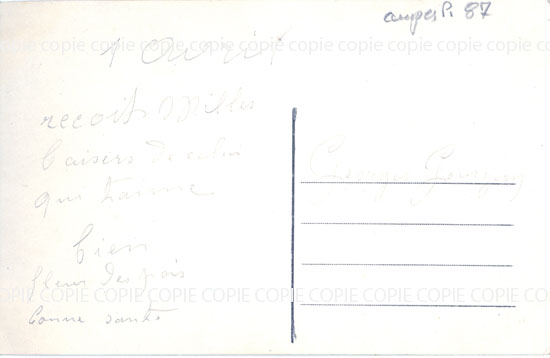 87
COPIE COPIE COPIE COPIE COPIE COPIE COPIE COPIE COPIE COPIE
1 avril
recoit Milles
baisers de celui
qui t'aime
bien
fleur des pois
bonne santé
Georges
COPIE COPIE COPIE COPIE COPIE COPIE COPIE COPIE COPIE COPIE